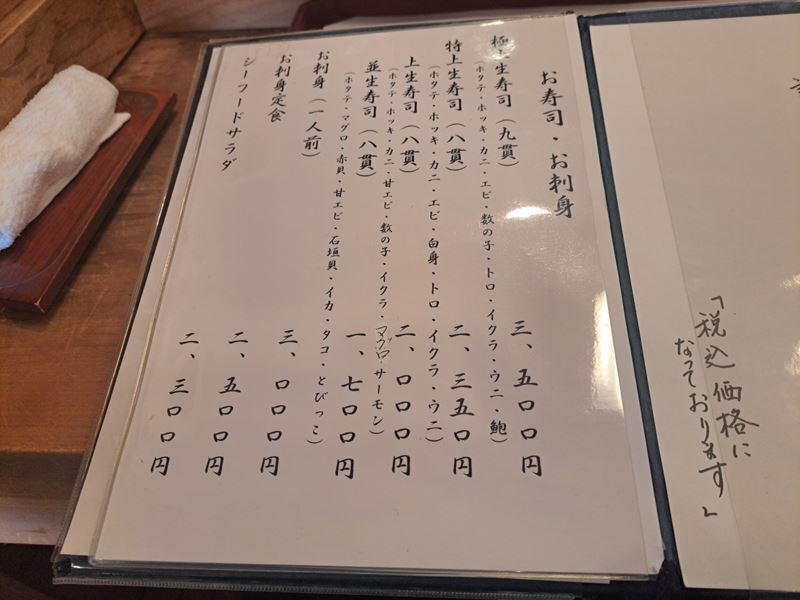 お寿司・お刺身
極上生寿司（九貫）
三、五〇〇円
（ホタテ・ホッキ・カニ・エビ・数の子・トロ・イクラ・ウニ・鮑）
特上生寿司（八貫）
二、三五〇円
（ホタテ・ホッキ・カニ・エビ・白身・トロ・イクラ・ウニ）
上生寿司（八貫）
二、〇〇〇円
（ホタテ・ホッキ・カニ・甘エビ・数の子・イクラ・マグロ・サーモン）
並生寿司（八貫）
一、七〇〇円
（ホタテ・マグロ・赤貝・甘エビ・石垣貝・イカ・タコ・とびっこ）
お刺身（一人前）
三、〇〇〇円
お刺身定食
二、五〇〇円
シーフードサラダ
二、三〇〇円
「税込価格に
なっております」